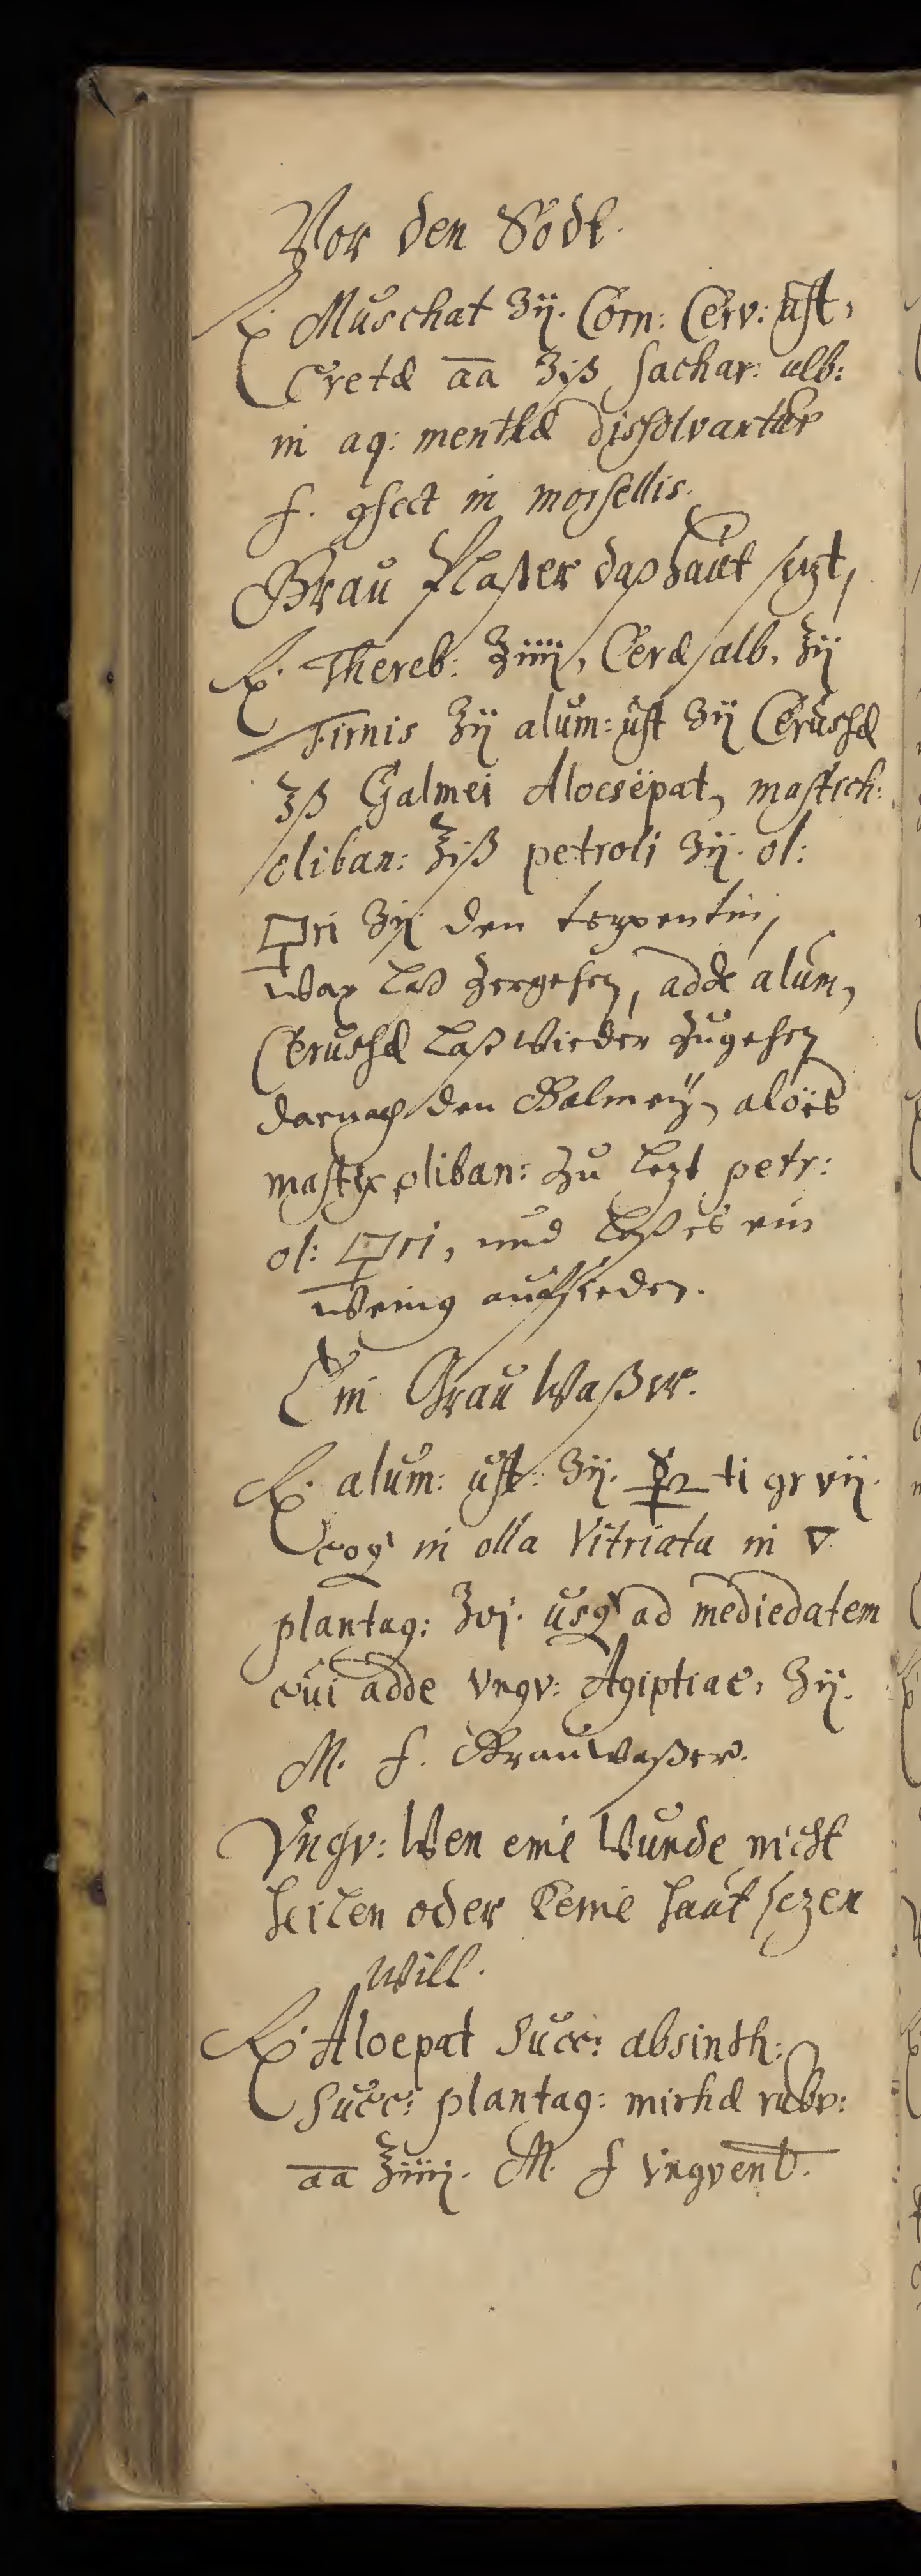 Vor den Södt.
℞. Muschat ʒij. Corn: Cerv: ust,
Cretæ āā ʒiß sachar: alb:
in aq: menthæ dissolvantur
f. ꝯfect in morsellis.
Grau Pflaster das haut sezt,
℞. Thereb: ℥iiij, Ceræ alb, ℥ij
Firnis ℥ij alum: ust ʒij Cerussæ
℥ß Galmei Aloesepat, mastich:
oliban: ℥iß petroli ʒij. ol:
🜿ri ʒij den terpentin,
wax laß zergehen, adde alum,
Cerussæ laß wieder zugehen
darnach den Galmeÿ, aloës
mastix oliban: zu lezt petr:
ol: 🜿ri, und laß es ein
wenig auffsieden.
Ein Grau Waßer.
℞. alum: ust: ʒij. ☿ ti gr vij.
coq in olla Vitriata in ▽
plantag: ℥vj. usq ad mediedatem
cui adde Vngv: Agiptiac, ʒij.
M. f. Grauwaßer.
Vngv: Wen eine Wunde nicht
heilen oder keine haut sezen
will.
℞. Aloepat Succ: absinth:
Succ: plantag: mirhæ rubr:
āā ℥iiij. M. f Vngvent.